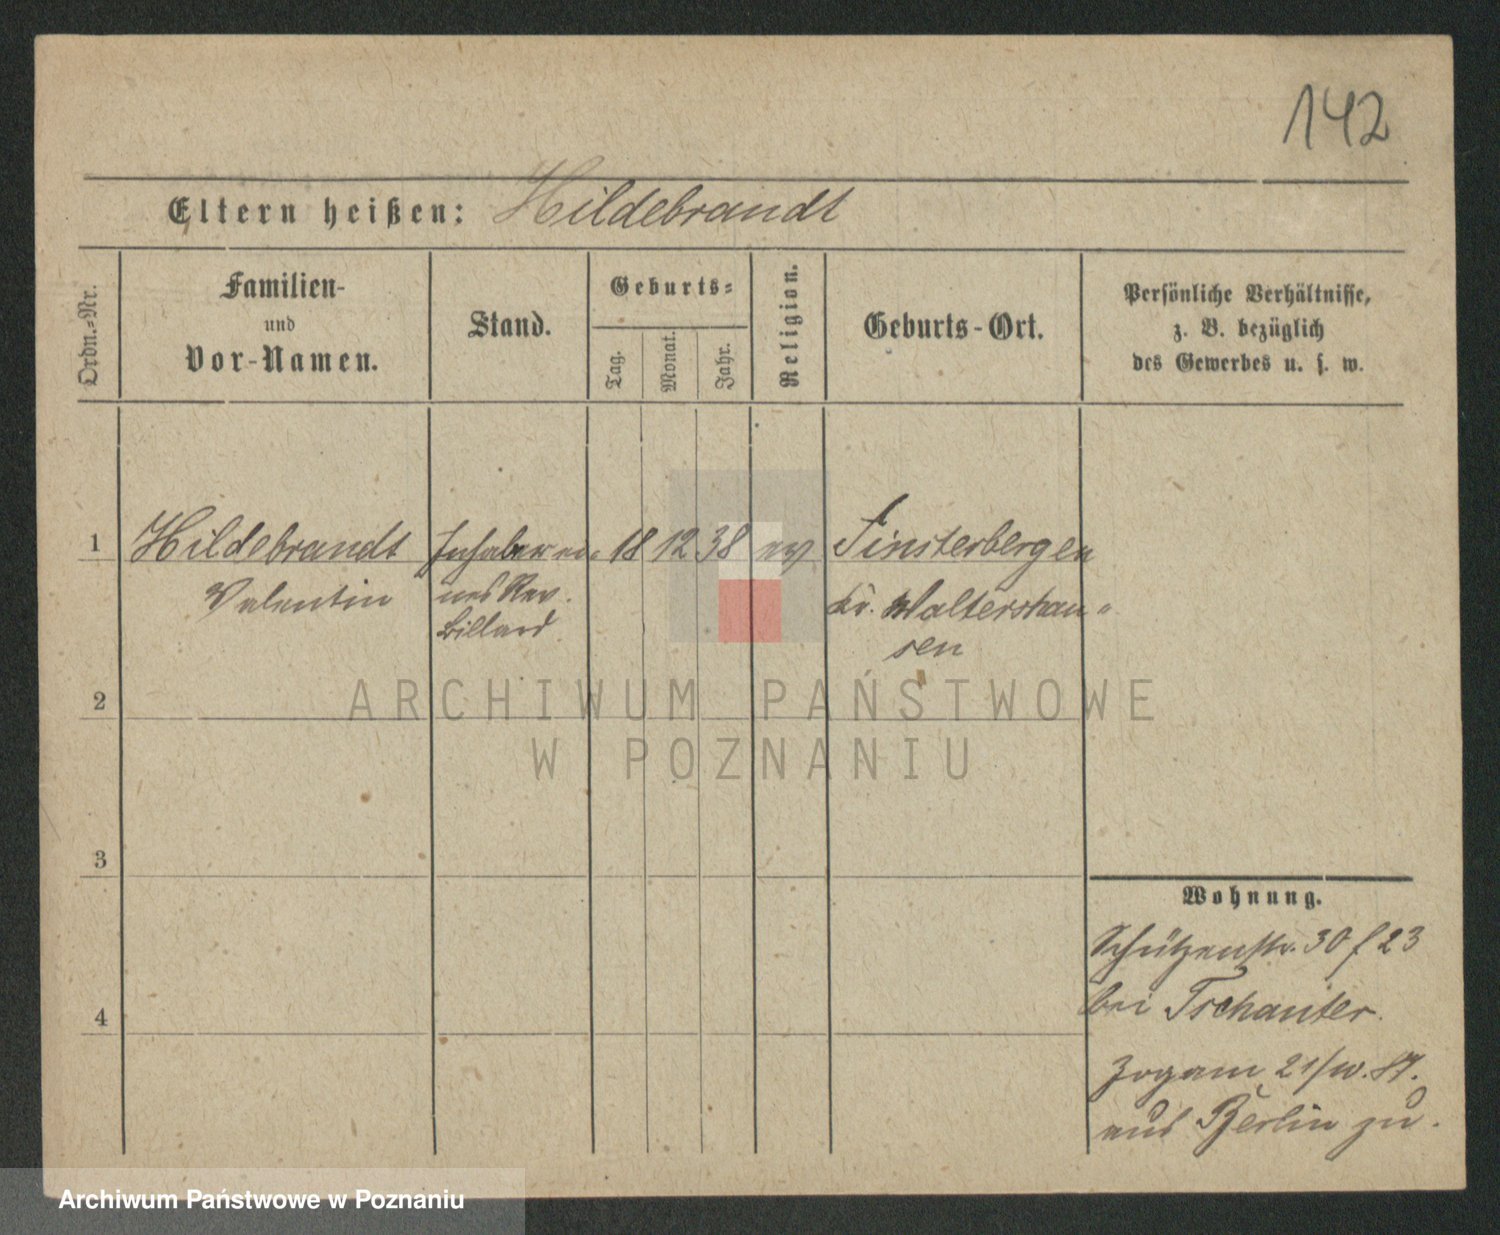 142
Eltern heißen: Hildebrandt
Ordn.-Nr.
Familien-
und
Vor-Namen.
Stand.
Geburts-
Tag.
Monat.
Jahr.
Religion.
Geburts-Ort.
Persönliche Verhältnisse,
z. B. bezüglich
des Gewerbes u. s. w.
1 Hildebrandt Inhaber ei- 18 12 38 ev Finsterbergen
Valentin nes Rev. Kr. Waltershau-
Billard sen
2
ARCHIWUM PAŃSTWOWE
W POZNANIU
3
Wohnung.
Schützenstr. 30 f 23
bei Tschauter.
4
Zog am 21/10. 87.
aus Berlin zu.
Archiwum Państwowe w Poznaniu